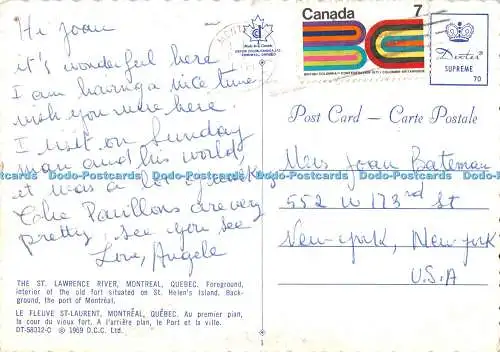 Hi Joan
it's wonderful here
I am having a nice time
wish you were here.
I visit on Sunday
man and his world,
it was a lot of walking
The Pavillons are very
pretty, see you see
Love, Angele
THE ST. LAWRENCE RIVER, MONTREAL, QUEBEC. Foreground,
interior of the old fort situated on St. Helen's Island. Back-
ground, the port of Montréal.
LE FLEUVE ST-LAURENT, MONTRÉAL, QUÉBEC. Au premier plan,
la cour du vieux fort. A l'arrière plan, le Port et la ville.
DT-58312-C © 1969 D.C.C. Ltd.
Made in Canada
Canada 7
BRITISH COLUMBIA
Dexter
SUPREME
70
Post Card — Carte Postale
Miss Joan Bateman
552 W 173rd St
New-york, New-york
U.S.A
1
Dodo-Postcards Dodo-Postcards Dodo-Postcards Dodo-Postcards Dodo-Postcards